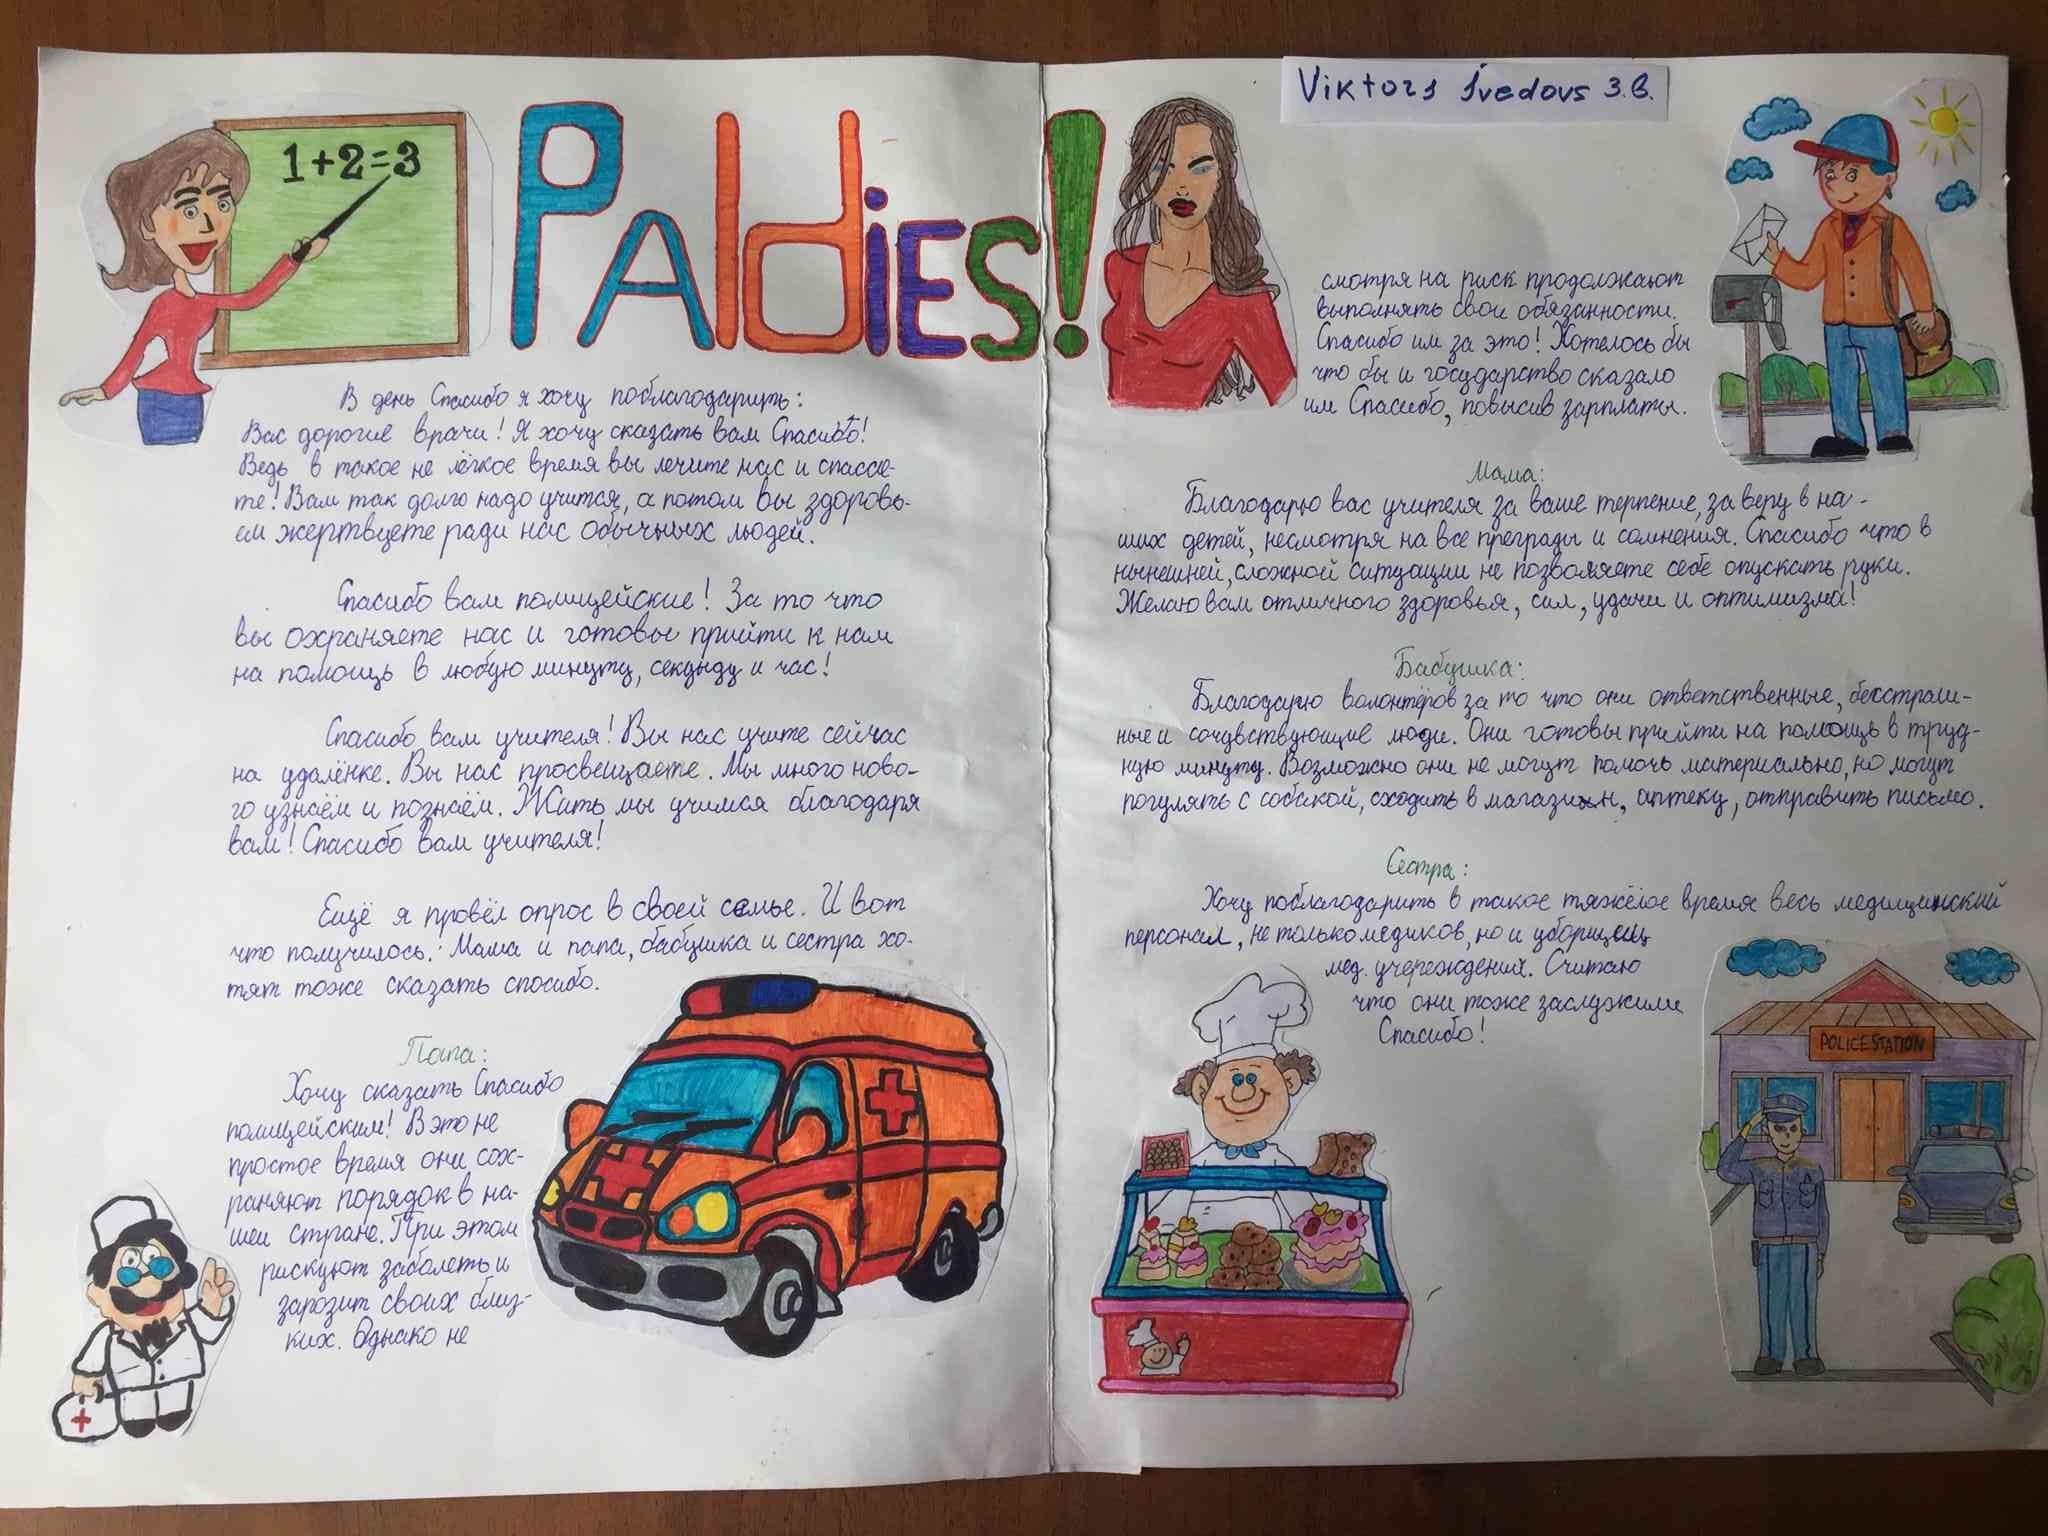 1+2=3
PAldiES!
Viktors Švedovs 3.B.
В день Спасибо я хочу поблагодарить:
Вас дорогие врачи! Я хочу сказать вам Спасибо!
Ведь в такое не лёгкое время вы лечите нас и спасае-
те! Вам так долго надо учится, а потом вы здоровь-
ем жертвуете ради нас обычных людей.
Спасибо вам полицейские! За то что
вы охраняете нас и готовы прийти к нам
на помощь в любую минуту, секунду и час!
Спасибо вам учителя! Вы нас учите сейчас
на удалёнке. Вы нас просвещаете. Мы много ново-
го узнаём и познаём. Жить мы учимся благодаря
вам! Спасибо вам учителя!
Ещё я провёл опрос в своей семье. И вот
что получилось: Мама и папа, бабушка и сестра хо-
тят тоже сказать спосибо.
Папа:
Хочу сказать Спасибо
полицейским! В это не
простое время они сох-
раняют порядок в на-
шей стране. При этом
рискуют заболеть и
заразит своих близ-
ких. Однако не
смотря на риск продолжают
выполнять свои обязанности.
Спасибо им за это! Хотелось бы
что бы и государство сказало
им Спасибо, повысив зарплаты.
Мама:
Благодарю вас учителя за ваше терпение, за веру в на-
ших детей, несмотря на все преграды и сомнения. Спасибо что в
нынешней, сложной ситуации не позволяете себе опускать руки.
Желаю вам отличного здоровья, сил, удачи и оптимизма!
Бабушка:
Благодарю волонтёров за то что они ответственные, бесстраш-
ные и сочувствующие люди. Они готовы прийти на помощь в труд-
ную минуту. Возможно они не могут помочь материально, но могут
погулять с собакой, сходить в магазин, аптеку, отправить письмо.
Сестра:
Хочу поблагодарить в такое тяжёлое время весь медицинский
персонал, не только медиков, но и уборщиц
мед. учереждений. Считаю
что они тоже заслужили
Спасибо!
POLICE STATION